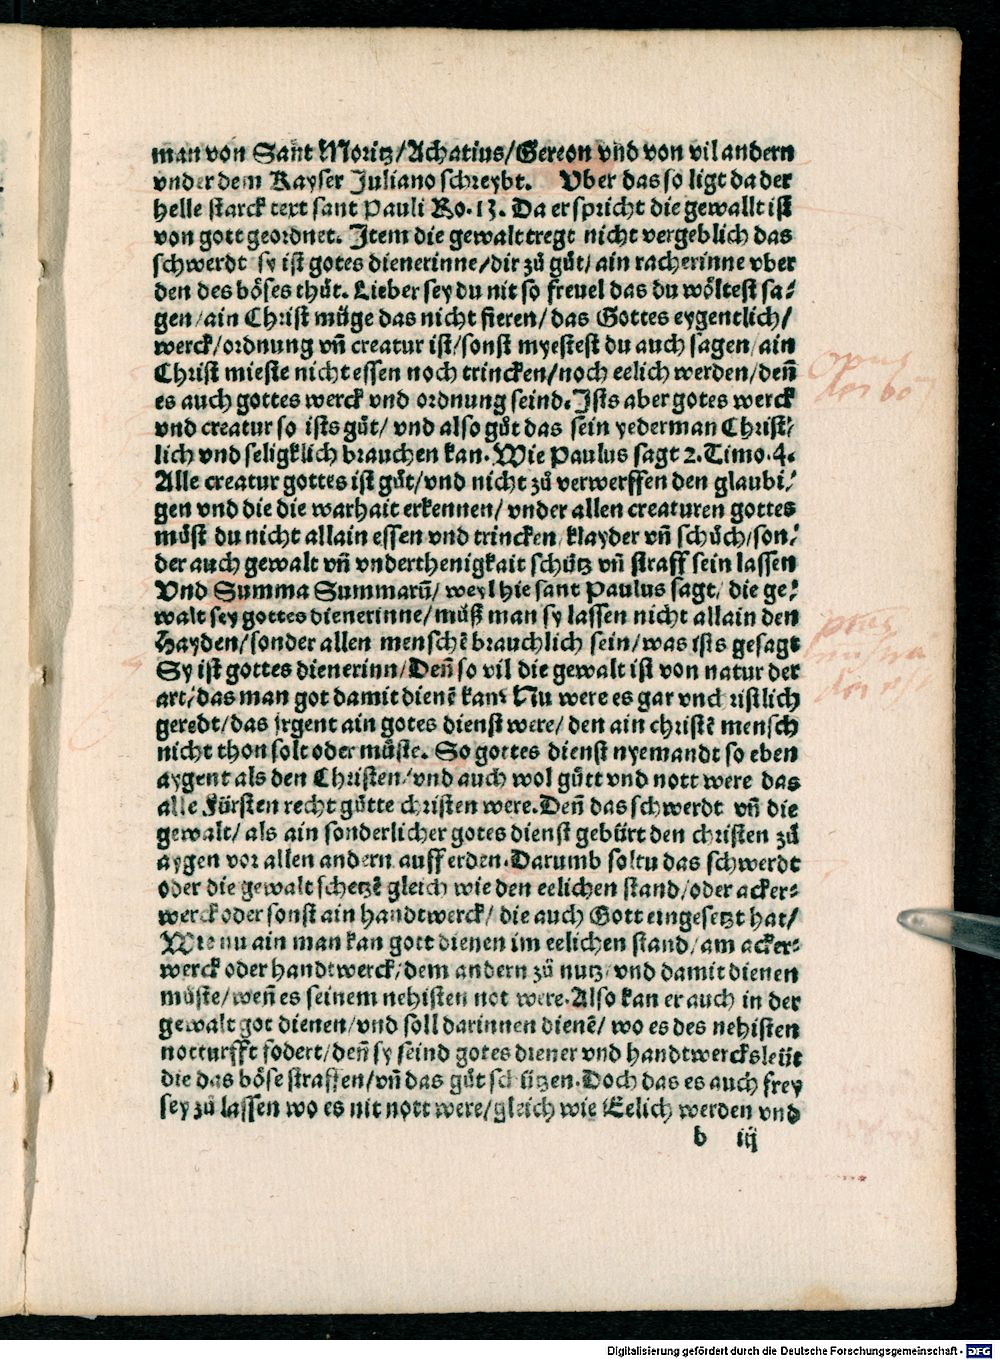 man von Sant Moritz/Achatius/Gereon vnd von vil andern
vnder dem Kayser Juliano schreybt. Vber das so ligt da der
helle starck text sant Pauli Ro. 13. Da er spricht die gewallt ist
von gott geordnet. Item die gewalt tregt nicht vergeblich das
schwerdt sy ist gotes dienerinne/dir zů gůt/ ain racherinne vber
den des böses thůt. Lieber sey du nit so freuel das du wöltest sa⸗
gen/ain Christ müge das nicht fieren/ das Gottes eygentlich/
werck/ordnung vñ creatur ist/sonst myestest du auch sagen/ain
Christ mieste nicht essen noch trincken/noch eelich werden/deñ
es auch gottes werck vnd ordnung seind. Ists aber gotes werck
vnd creatur so ists gůt/ vnd also gůt das sein yederman Christ⸗
lich vnd seligklich brauchen kan. Wie Paulus sagt 2. Timo. 4.
Alle creatur gottes ist gůt/vnd nicht zů verwerffen den glaubi⸗
gen vnd die die warhait erkennen/ vnder allen creaturen gottes
můst du nicht allain essen vnd trincken/klayder vñ schůch/son⸗
der auch gewalt vñ vnderthenigkait schütz vñ straff sein lassen
Vnd Summa Summarũ/ weyl hie sant Paulus sagt/ die ge⸗
walt sey gottes dienerinne/můß man sy lassen nicht allain den
Hayden/sonder allen menschẽ brauchlich sein/was ists gesagt
Sy ist gottes dienerinn/Deñ so vil die gewalt ist von natur der
art/das man got damit dienẽ kan? Nu were es gar vnchristlich
geredt/das jrgent ain gotes dienst were/ den ain christẽ mensch
nicht thon solt oder müste. So gottes dienst nyemandt so eben
aygent als den Christen/vnd auch wol gůtt vnd nott were das
alle Fürsten recht gůtte christen were. Deñ das schwerdt vñ die
gewalt/ als ain sonderlicher gotes dienst gebürt den christen zů
aygen vor allen andern auff erden. Darumb soltu das schwerdt
oder die gewalt schetzẽ gleich wie den eelichen stand/oder acker⸗
werck oder sonst ain handtwerck/ die auch Gott eingesetzt hat/
Wie nu ain man kan gott dienen im eelichen stand/am acker⸗
werck oder handtwerck/dem andern zů nutz/vnd damit dienen
müste/weñ es seinem nehisten not were. Also kan er auch in der
gewalt got dienen/vnd soll darinnen dienẽ/ wo es des nehisten
notturfft fodert/deñ sy seind gotes diener vnd handtwercksleüt
die das böse straffen/vñ das gůt schützen. Doch das es auch frey
sey zů lassen wo es nit nott were/gleich wie Eelich werden vnd
b iij
Digitalisierung gefördert durch die Deutsche Forschungsgemeinschaft - DFG